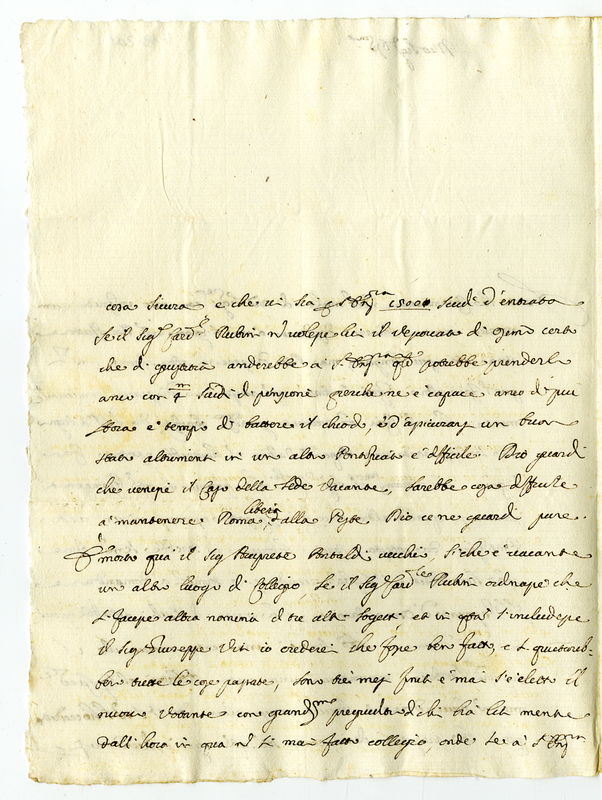 cosa sicura e che vi sia p S. Em.ra 15000 scudi d'entrata
Se il Sig.r Card.le Rubini nō volesse lui il Vescovato di
che di giustitia anderebbe a S. Em.ra potrebbe prenderla
anco con 4 m Scudi di pensione perche ne è capace anco di piu
hora è tempo di battere il chiodo, e d'assicurarsi un buon
stato altrimenti in un altro Pontificato è difficile Dio guardi
che venisse il Caso della Sede Vacante, sarebbe cosa difficile
a mantenere Roma libera dalla Peste Dio ce ne guardi pure.
È morto quà il Sig. Ubaldi vecchio, si che è vacante
un altro luogo di Collegio, se il Sig.r Card.le Rubini ordinasse che
si facesse altra nomina di tre altri sogetti, et in s'includesse
il Sig. Giuseppe Viti io crederei che fosse ben fatto, e si quietareb-
ber tutte le cose passate, sono tre mesi finiti e mai s'è eletto il
nuovo Votante con grand.mo pregiuditio di chi hà liti mentre
dall'hora in quà nō s'è mai fatto collegio, onde se a S. Em.ra